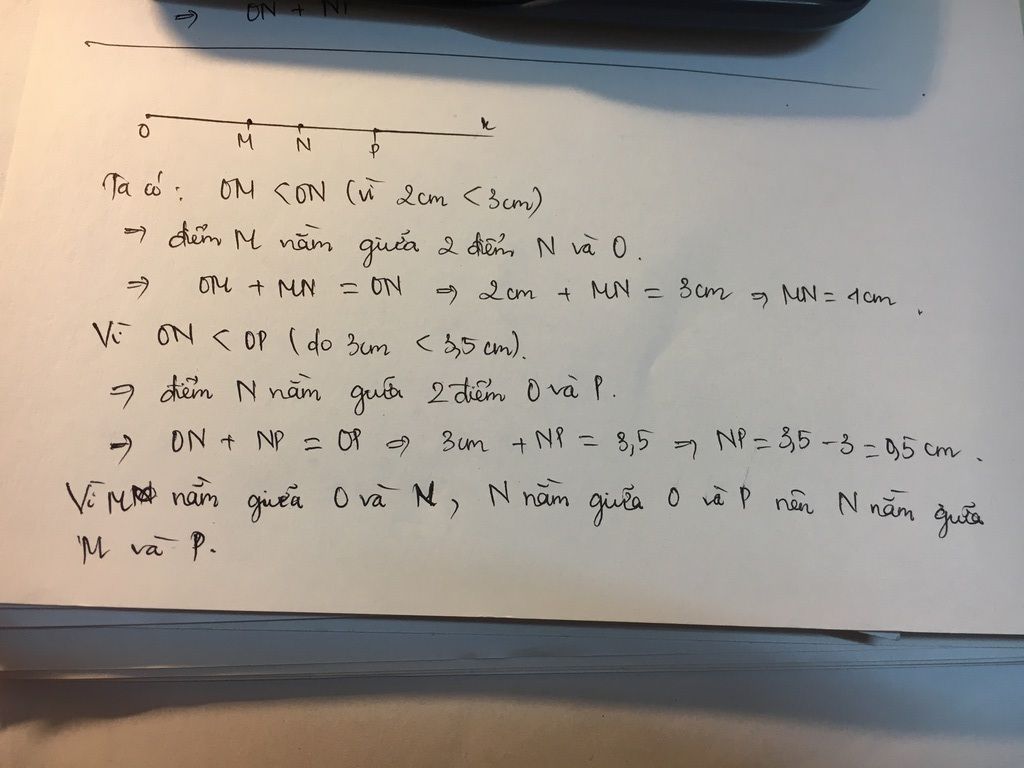 ⇒ ON + NP
O M N P x
Ta có: OM < ON (vì 2cm < 3cm)
⇒ điểm M nằm giữa 2 điểm N và O.
⇒ OM + MN = ON ⇒ 2cm + MN = 3cm ⇒ MN = 1cm.
Vì ON < OP (do 3cm < 3,5cm).
⇒ điểm N nằm giữa 2 điểm O và P.
⇒ ON + NP = OP ⇒ 3cm + NP = 3,5 ⇒ NP = 3,5 - 3 = 0,5cm.
Vì M nằm giữa O và N, N nằm giữa O và P nên N nằm giữa
M và P.